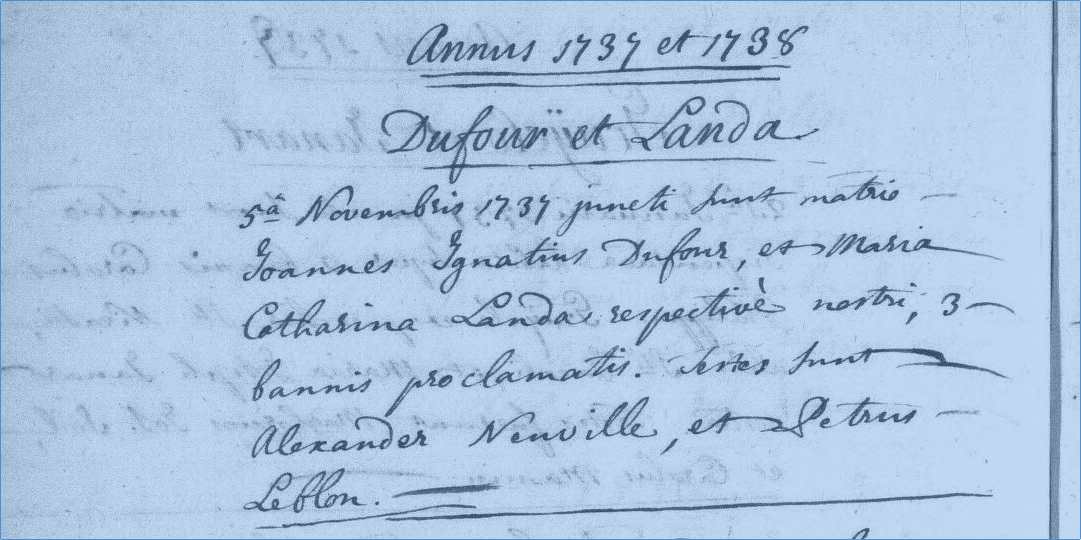 Annus 1737 et 1738
Dufour et Landa
5â Novembris 1737 juncti sunt matrio
Joannes Ignatius Dufour, et Maria
Catharina Landa respectivè nostri, 3
bannis proclamatis. testes sunt
Alexander Neuville, et Petrus
Leblon.